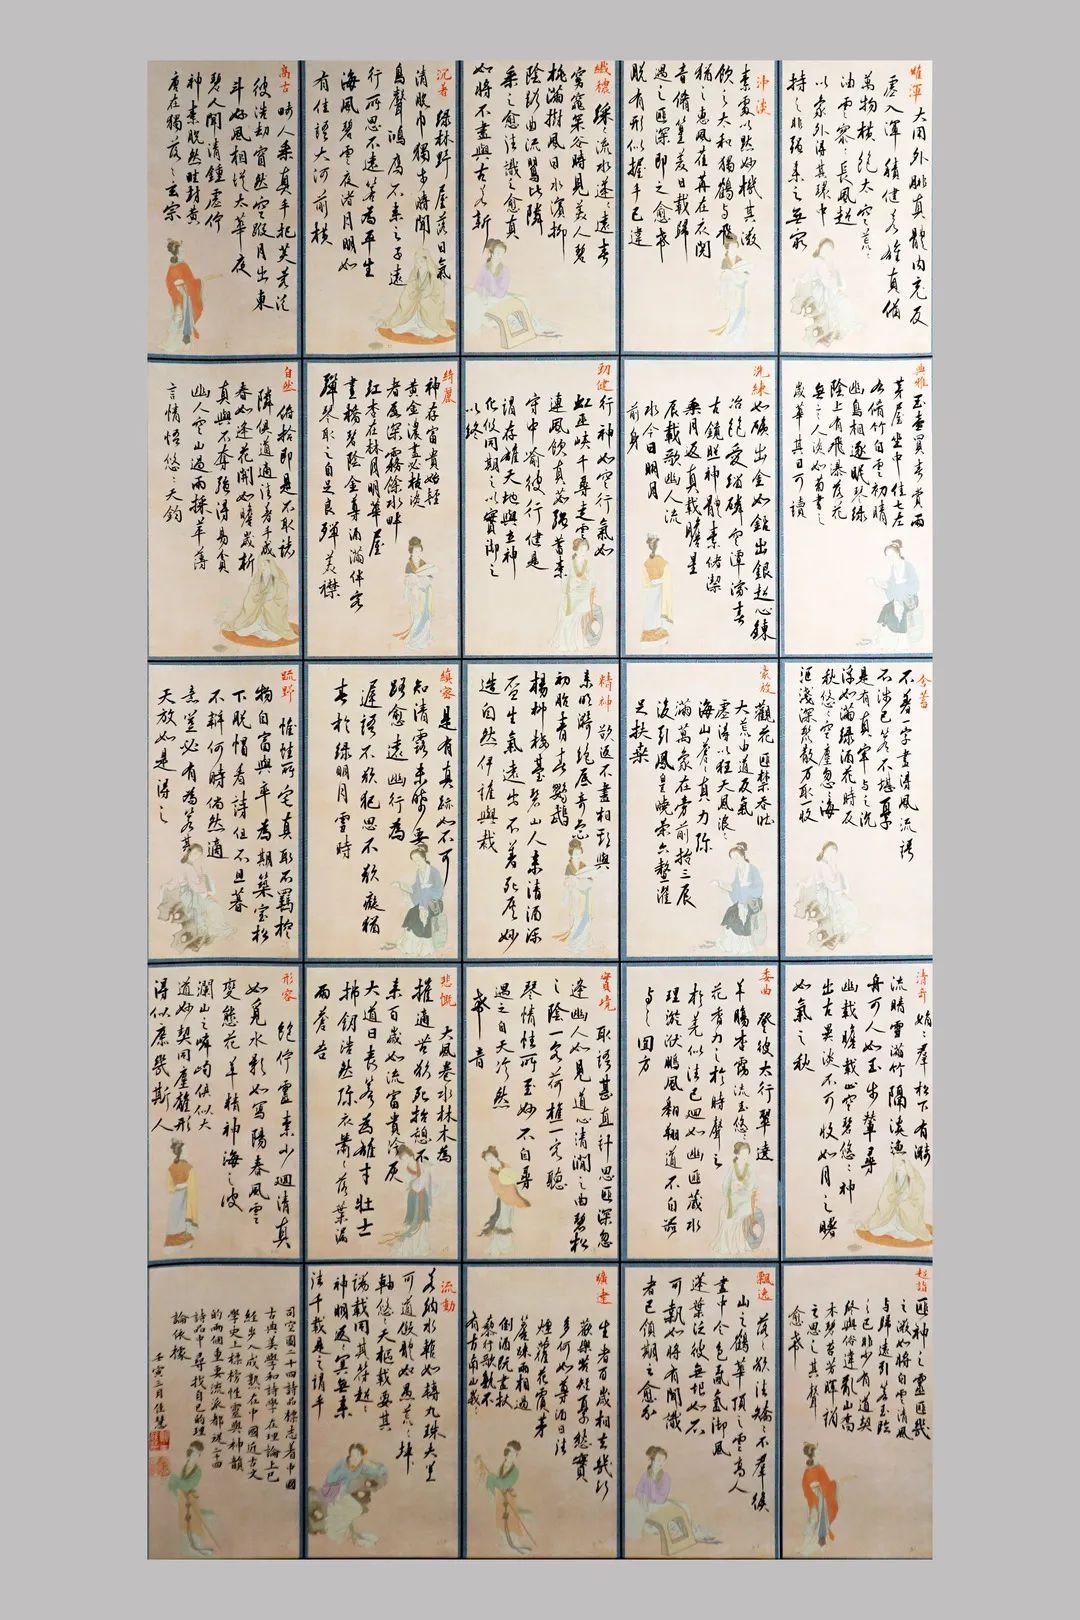 雄渾
大用外腓真體內充反
虛入渾積健為雄具備
萬物橫絕太空荒〻
油雲寥〻長風超
以象外得其環中
持之非強來之無窮
沖淡
素處以默妙機其微
飲之太和獨鶴與飛
猶之惠風荏苒在衣閱
音脩篁美曰載歸
遇之匪深即之愈希
脫有形似握手已違
纖穠
採〻流水蓬〻遠春
窈窕深谷時見美人碧
桃滿樹風日水濱柳
陰路曲流鶯比隣
乘之愈往識之愈真
如將不盡與古為新
沉著
綠林野屋落日氣
清脫巾獨步時聞
鳥聲鴻雁不來之子遠
行所思不遠若為平生
海風碧雲夜渚月明如
有佳語大河前橫
高古
畸人乘真手把芙蓉泛
彼浩劫窅然空蹤月出東
斗好風相從太華夜
碧人聞清鐘虛佇
神素脫然畦封黃
唐在獨落〻玄宗
典雅
玉壺買春賞雨
茅屋坐中佳士左
右脩竹白雲初晴
幽鳥相逐眠琴綠
陰上有飛瀑落花
無言人淡如菊書之
歲華其曰可讀
洗練
如礦出金如鉛出銀超心鍊
冶絕愛緇磷空潭瀉春
古鏡照神體素儲潔
乘月返真載瞻星
辰載歌幽人流
水今日明月
前身
勁健
行神如空行氣如
虹巫峽千尋走雲
連風飲真茹強蓄素
守中喻彼行健是
謂存雄天地與立神
化攸同期之以實御之
以終
綺麗
神存富貴始輕
黃金濃盡必枯淡
者屢深霧餘水畔
紅杏在林月明華屋
畫橋碧陰金尊酒滿伴客
彈琴取之自足良殫美襟
自然
俯拾即是不取諸
隣俱道適往著手成
春如逢花開如瞻歲新
真與不奪強得易貧
幽人空山過雨採蘋薄
言情悟悠〻天鈞
含蓄
不著一字盡得風流語
不涉己若不堪憂
是有真宰與之沉
浮如滿綠酒花時反
秋悠〻空塵忽〻海
漚淺深聚散萬取一收
豪放
觀花匪禁吞吐
大荒由道反氣
虛得以狂天風浪〻
海山蒼〻真力弥
滿萬象在旁前招三辰
後引鳳皇曉策六鰲濯
足扶桑
精神
欲返不盡相期與
來明漪絕底奇花
初胎青春鸚鵡
楊柳樓臺碧山人來清酒深
盃生氣遠出不著死灰妙
造自然伊誰與裁
縝密
是有真跡如不可
知清露未晞要
路愈遠幽行為
遲語不欲犯思不欲癡猶
春於綠明月雪時
疏野
惟性所宅真取不羈控
物自富與率為期築室松
下脫帽看詩但知旦暮
不辨何時倘然適
意豈必有為若其
天放如是得之
清奇
娟〻羣松下有漪
流晴雪滿竹隔溪漁
舟可人如玉步屧尋
幽載瞻載止空碧悠〻神
出古異淡不可收如月之曙
如氣之秋
委曲
登彼太行翠遶
羊腸杳靄流玉悠〻
花香力之於時聲之
於羌似往已迴如幽匪藏水
理漩洑鵬風翱翔道不自器
與之圓方
實境
取語甚直計思匪深忽
逢幽人如見道心清澗之曲碧松
之陰一客荷樵一客聽
琴情性所至妙不自尋
遇之自天泠然
希音
悲慨
大風卷水林木為
摧適苦欲死招憩不
來百歲如流富貴冷灰
大道日喪若為雄才壯士
拂劍浩然弥哀蕭〻落葉漏
雨蒼苔
形容
絕佇靈素少迴清真
如覓水影如寫陽春風雲
變態花草精神海之波
瀾山之嶙峋俱似大
道妙契同塵離形
得似庶幾斯人
超詣
匪神之靈匪幾
之微如將白雲清風
與歸遠引若至臨
之已非少有道契
終與俗違亂山喬
木碧苔芳暉誦
之思之其聲
愈希
飄逸
落〻欲往矯〻不羣緱
山之鶴華頂之雲高人
畫中令色氤氳御風
蓬葉泛彼無垠如不
可執如將有聞識
者已領期之愈分
曠達
生者百歲相去幾何
歡樂苦短憂愁實
多何如尊酒日往
煙蘿花覆茅
簷疎雨相過
倒酒既盡扶
藜行歌孰不
有古南山峩〻
流動
若納水輨如轉丸珠夫豈
可道假體如愚荒〻坤
軸悠〻天樞載要其
端載同其符超〻
神明返〻冥無來
往千載是之謂乎
司空圖二十四詩品標志著中國
古典美學和詩學在理論上已
經步入成熟在中國近古文
學史上標榜性靈與神韻
的兩個重要流派都從二十四
詩品中尋找自己的理
論依據
壬寅三月佳慧